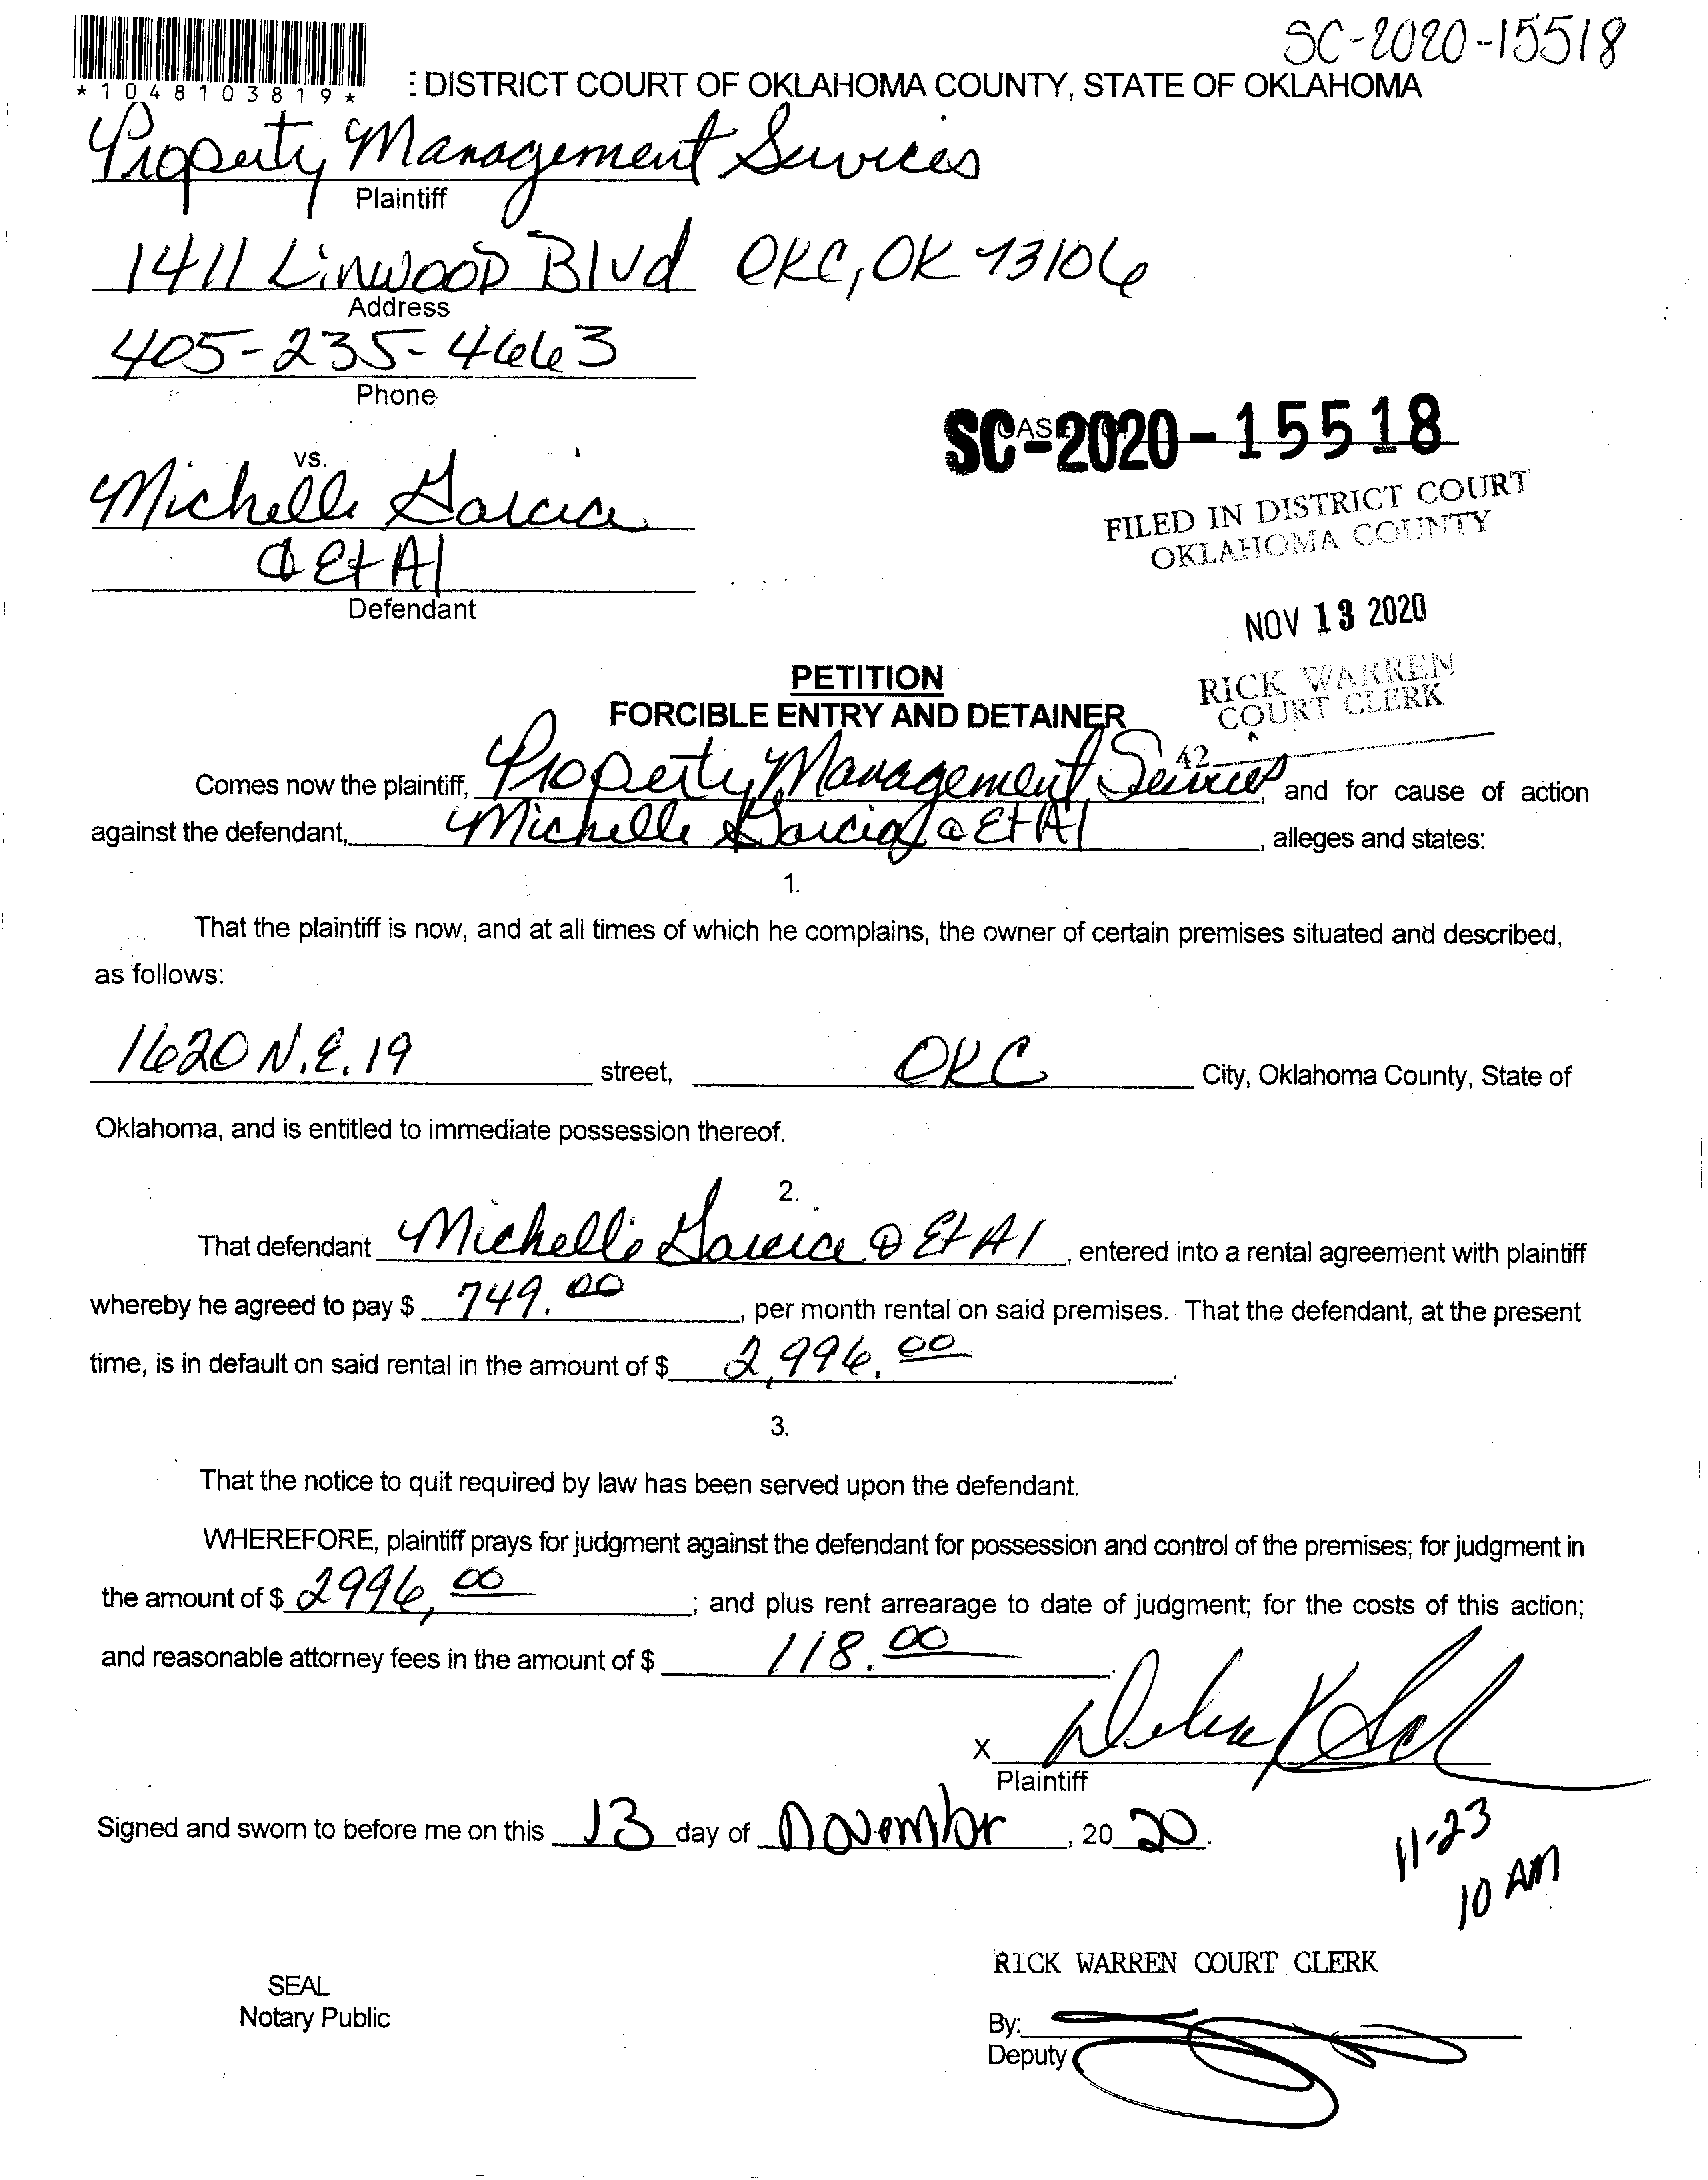 SC-2020-15518
*1048103819*
: DISTRICT COURT OF OKLAHOMA COUNTY, STATE OF OKLAHOMA
Property Management Services
Plaintiff
1411 Linwood Blvd OKC, OK 73106
Address
405-235-4663
Phone
SC-2020-15518
vs.
Michelle Garcia
FILED IN DISTRICT COURT
OKLAHOMA COUNTY
& Et Al
Defendant
NOV 13 2020
PETITION
RICK WARREN
COURT CLERK
FORCIBLE ENTRY AND DETAINER
42
Comes now the plaintiff, Property Management Services, and for cause of action
against the defendant, Michelle Garcia & Et Al, alleges and states:
1.
That the plaintiff is now, and at all times of which he complains, the owner of certain premises situated and described,
as follows:
1620 N.E. 19 street, OKC City, Oklahoma County, State of
Oklahoma, and is entitled to immediate possession thereof.
2.
That defendant Michelle Garcia & Et Al, entered into a rental agreement with plaintiff
whereby he agreed to pay $ 749.00, per month rental on said premises. That the defendant, at the present
time, is in default on said rental in the amount of $ 2,996.00.
3.
That the notice to quit required by law has been served upon the defendant.
WHEREFORE, plaintiff prays for judgment against the defendant for possession and control of the premises; for judgment in
the amount of $ 2996.00; and plus rent arrearage to date of judgment; for the costs of this action;
and reasonable attorney fees in the amount of $ 118.00
x
Plaintiff
Signed and sworn to before me on this 13 day of November, 20 20.
11-23
10 AM
RICK WARREN COURT CLERK
SEAL
Notary Public
By:
Deputy